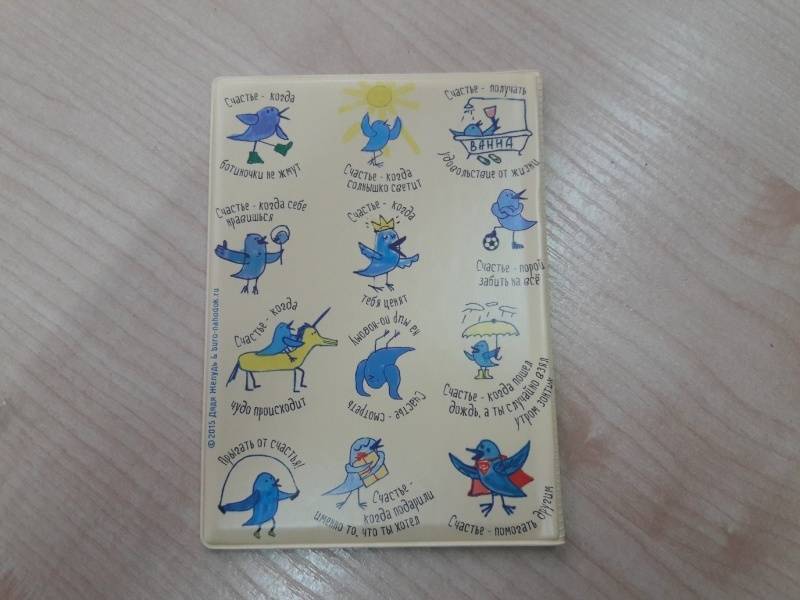 Счастье - когда
ботиночки не жмут
Счастье - когда
солнышко светит
Счастье - получать
ВАННА
удовольствие от жизни
Счастье - когда себе
нравишься
Счастье - когда
тебя ценят
Счастье - порой
забить на всё
Счастье - когда
чудо происходит
Счастье - смотреть
на мир по-новому
Счастье - когда пошел
дождь, а ты случайно взял
утром зонтик
Прыгать от счастья!
Счастье -
когда подарили
именно то, что ты хотел
Счастье - помогать другим
© 2015 Дядя Желудь & buro-nahodok.ru